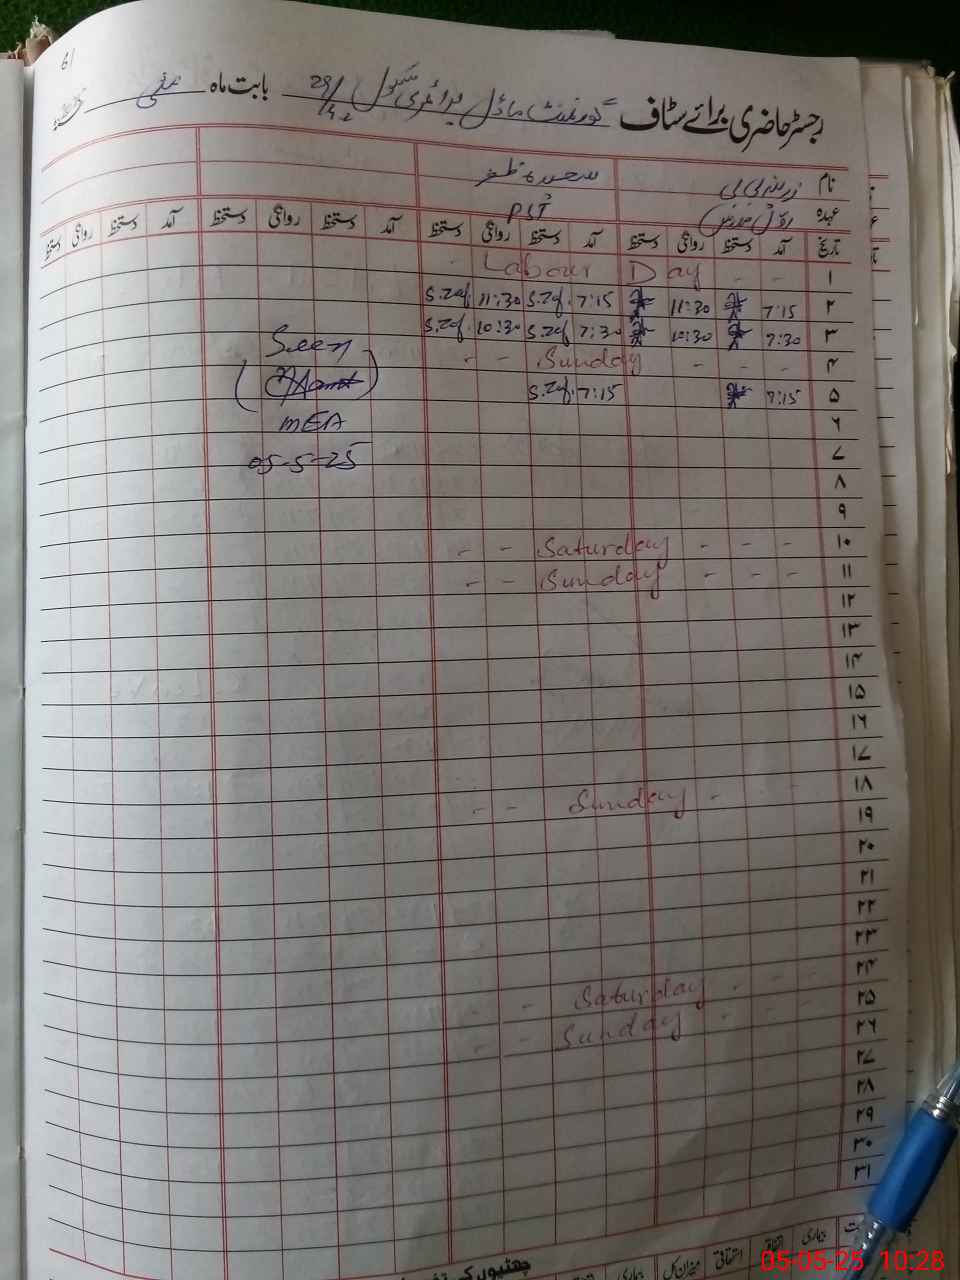 61
رجسٹر حاضری برائے سٹاف گورنمنٹ ماڈل پرائمری سکول بابت ماہ مئی
نام
عہدہ PST
تاریخ آمد دستخط روانگی دستخط آمد دستخط روانگی دستخط آمد دستخط روانگی دستخط آمد دستخط روانگی دستخط
۱ Labour Day
۲ 7:15 11:30 7:15 S.Zaf. 11:30 S.Zaf.
۳ 7:30 10:30 7:30 S.Zaf 10:30 S.Zaf.
۴ Sunday
۵ 7:15 7:15 S.Zaf.
Seen
MEA
05-5-25
۶
۷
۸
۹
۱۰ Saturday
۱۱ Sunday
۱۲
۱۳
۱۴
۱۵
۱۶
۱۷
۱۸ Sunday
۱۹
۲۰
۲۱
۲۲
۲۳
۲۴ Saturday
۲۵ Sunday
۲۶
۲۷
۲۸
۲۹
۳۰
۳۱
بیماری اتفاقیہ استحقاقی میزان کل بیماری
چھٹیوں کی
05-05-25 10:28